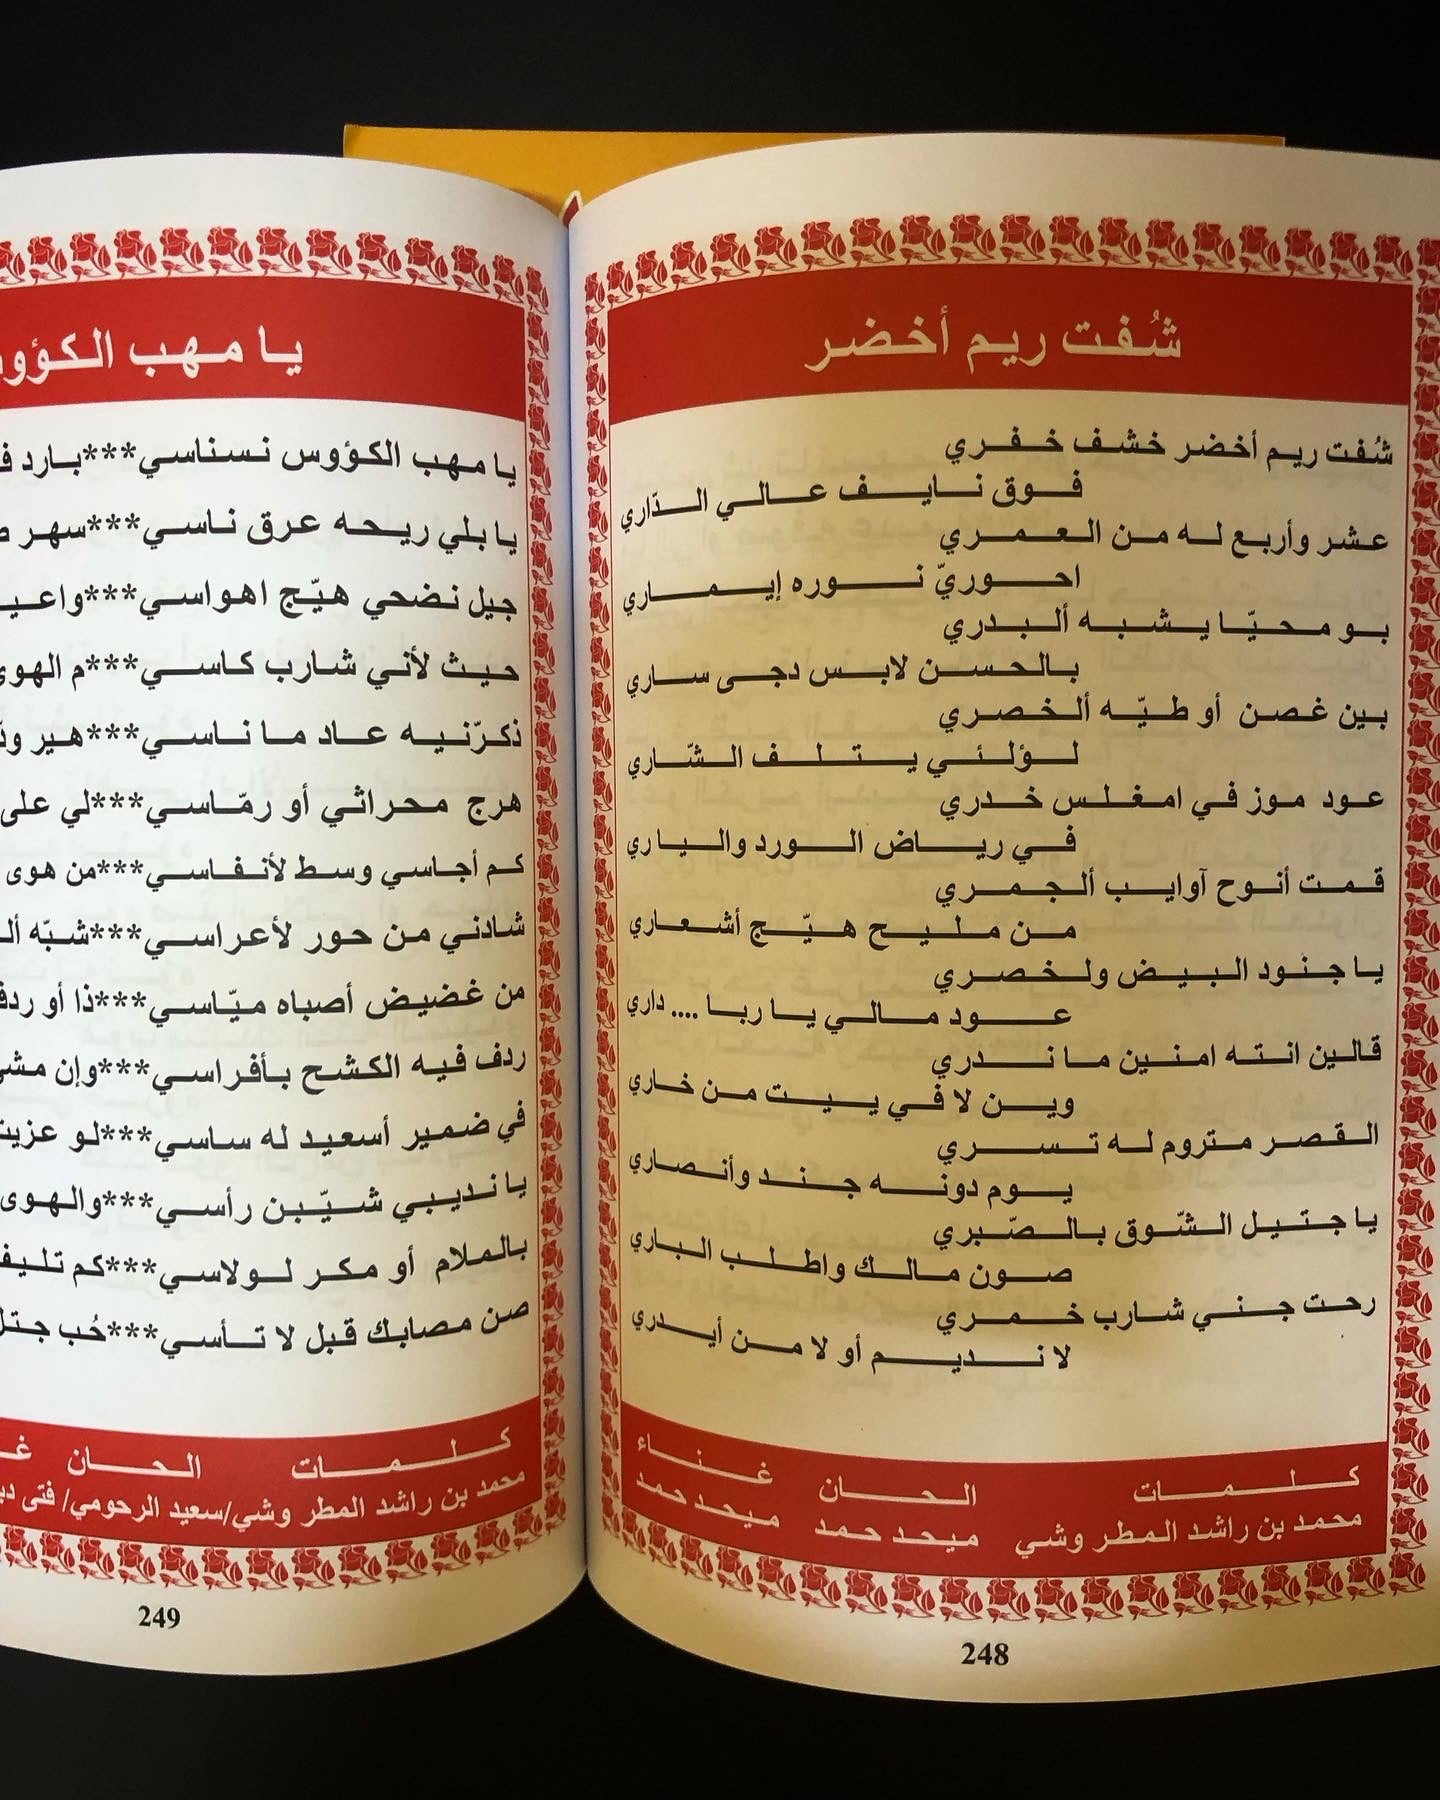 شُفت ريم أخضر
شُفت ريم أخضر خشف خفري
فوق نايف عالي الدّاري
عشر وأربع له من العمري
احوريّ نوره إيماري
بو محيّا يشبه ألبدري
بالحسن لابس دجى ساري
بين غصن أو طيّه ألخصري
لؤلئي يتلف الشّاري
عود موز في امغلس خدري
في رياض الورد والياري
قمت أنوح آوايب ألجمري
من مليح هيّج أشعاري
يا جنود البيض ولخصري
عود مالي يا ربا .... داري
قالين انته امنين ما ندري
وين لا في ييت من خاري
القصر متروم له تسري
يوم دونه جند وأنصاري
يا جتيل الشّوق بالصّبري
صون مالك واطلب الباري
رحت جني شارب خمري
لا نديم أو لا من أيدري
كلمات الحان غناء
محمد بن راشد المطر وشي ميحد حمد ميحد حمد
248
يا مهب الكؤوس
يا مهب الكؤوس نسناسي***بارد
يا بلي ريحه عرق ناسي***سهر
جيل نضحي هيّج اهواسي***واعيـ
حيث لأني شارب كاسي***م الهوى
ذكرّنيه عاد ما ناسي***هير
هرج محراثي أو رمّاسي***لي على
كم أجاسي وسط لأنفاسي***من هوى
شادني من حور لأعراسي***شبّه
من غضيض أصباه ميّاسي***ذا أو
ردف فيه الكشح بأفراسي***وإن
في ضمير أسعيد له ساسي***لو
يا نديبي شيّبن رأسي***والهوى
بالملام أو مكر لولاسي***كم
صن مصابك قبل لا تأسي***حُب
كلمات الحان
محمد بن راشد المطر وشي/سعيد الرحومي/ فتى
249